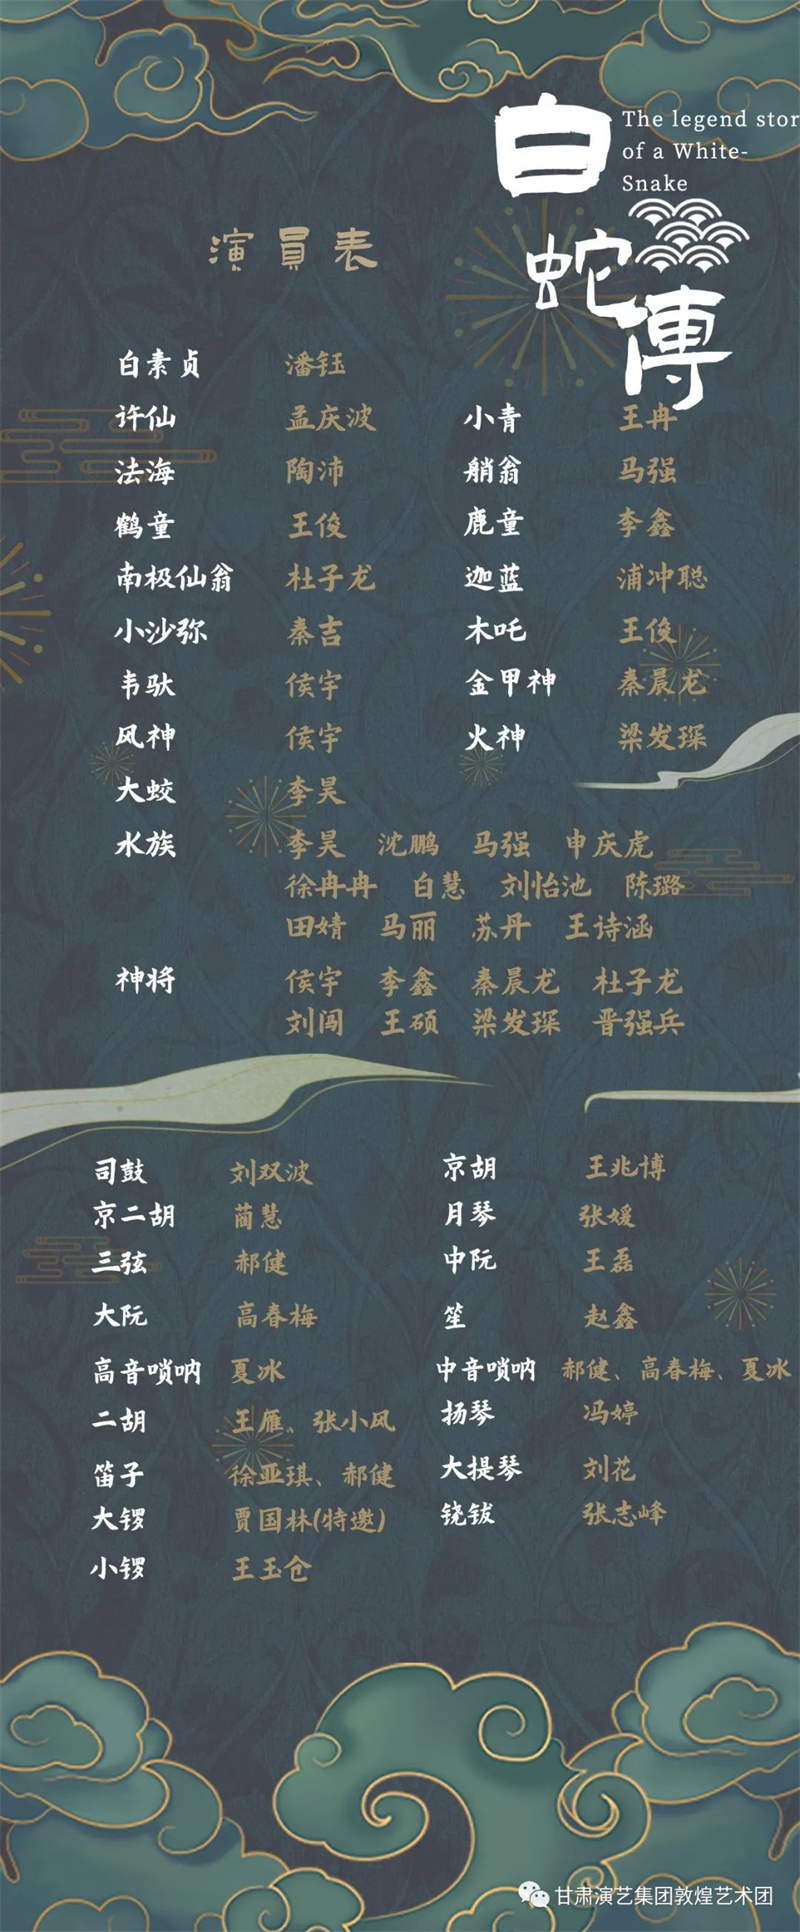 白蛇傳
The legend stor
of a White-
Snake
演員表
白素贞 潘钰
许仙 孟庆波 小青 王冉
法海 陶沛 艄翁 马强
鹤童 王俊 鹿童 李鑫
南极仙翁 杜子龙 迦蓝 浦冲聪
小沙弥 秦吉 木吒 王俊
韦驮 侯宇 金甲神 秦晨龙
风神 侯宇 火神 梁发琛
大蛟 李昊
水族 李昊 沈鹏 马强 申庆虎
徐冉冉 白慧 刘怡池 陈璐
田婧 马丽 苏丹 王诗涵
神将 侯宇 李鑫 秦晨龙 杜子龙
刘闯 王硕 梁发琛 晋强兵
司鼓 刘双波 京胡 王兆博
京二胡 蔺慧 月琴 张媛
三弦 郝健 中阮 王磊
大阮 高春梅 笙 赵鑫
高音唢呐 夏冰 中音唢呐 郝健、高春梅、夏冰
二胡 王雁、张小风 扬琴 冯婷
笛子 徐亚琪、郝健 大提琴 刘花
大锣 贾国林(特邀) 铙钹 张志峰
小锣 王玉仓
甘肃演艺集团敦煌艺术团